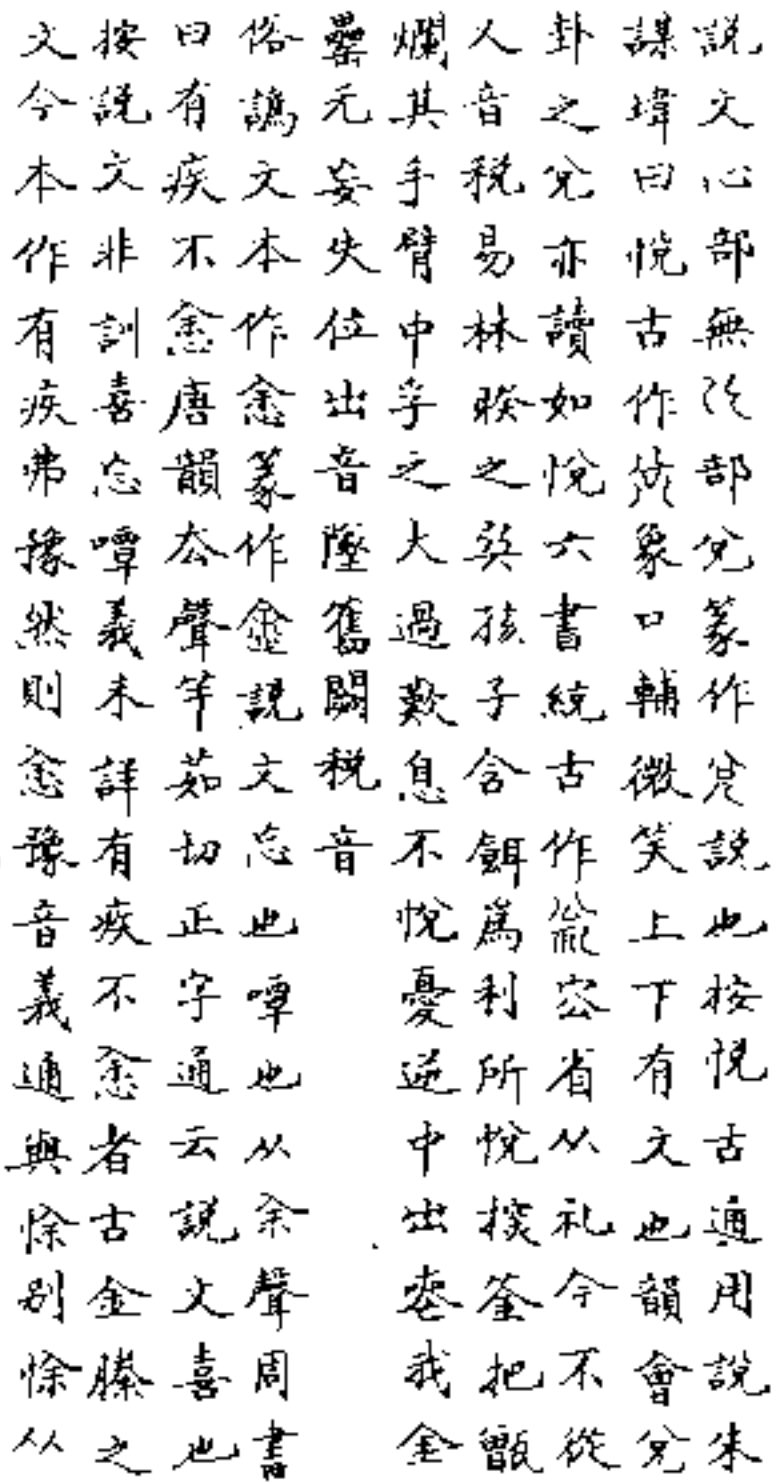 説文心部無次部兌篆作兊説也按悅古通用説朱
謀㙔曰悅古作兌象口輔微笑上下有文也韻會兌
卦之兌亦讀如悅六書統古作㕡省从礼今不從
人音税易林睽之巽孩子含餌爲利所悅探釜把甑
爛其手臂中孚之大過歎息不悅憂逆中出喪我金
罍无妄失位出音墜舊闕税音
俗譌文本作悆篆作悆説文忘也嘾也从余聲周書
曰有疾不悆唐韻杰聲羊茹切正字通云説文喜也
按説文非訓喜忘嘾義未詳有疾不悆者古金縢之
文今本作有疾弗豫然則悆豫音義通與悇别悇从